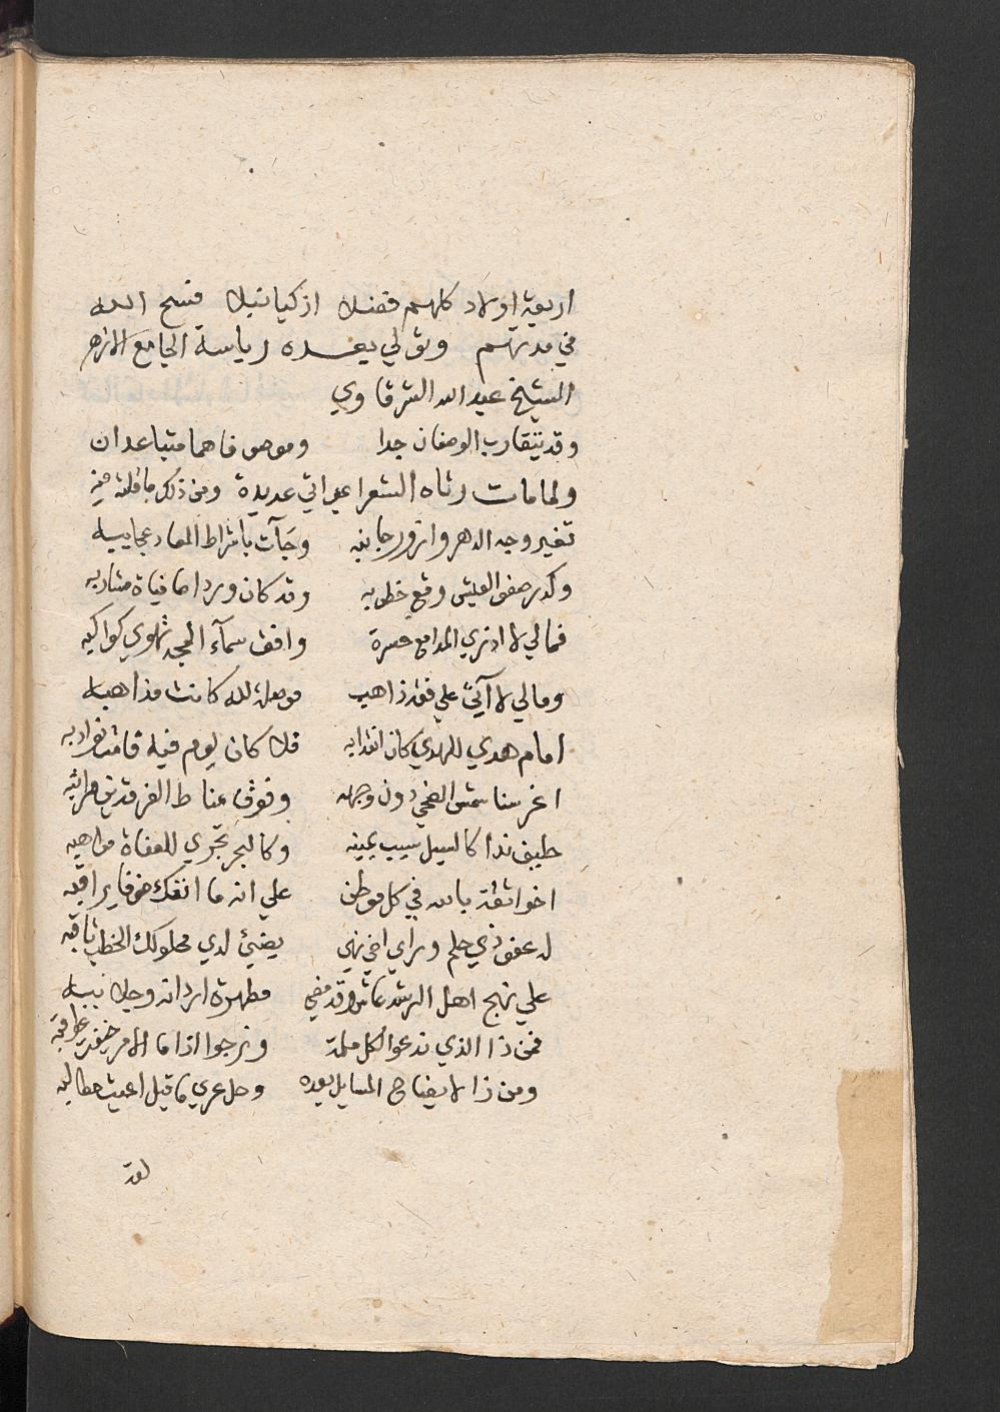 اربعة اولاد كلهم فضلا ازكيا نبلا فسح الله
في مدتهم وتولي بعده رياسة الجامع الازهر
الشيخ عبد الله الشرقاوي
وقد يتقارب الوصفان جدا وموصوفاهما متباعدان
ولما مات رثاه الشعرا بمراثي عديدة ومن ذلك ما قلته فيه
تغير وجه الدهر وازور جانبه وجآت باشراط المعاد عجايبه
وكدر صفو العيش وقع خطوبه وقد كان وردا صافياة مشاربه
فمالي لا اذري المدامع حسرة وافق سمآء المجد تهوي كواكبه
ومالي لا آتي علي فقد ذاهب موصلة لله كانت مذاهبه
امام هدي للهدي كان انتدابه فلا كان يوم فيه قامت نوادبه
اغر سنا شمس الضحي دون وجهه وفوق مناط الفرقدين مراتبه
حليف ندا كالسيل سيب يمينه وكالبحر تجري للعفاة مواهبه
اخو اثقة بالله في كل موطن علي انه ما انفك خوفا يراقبه
له عفو ذي حلم وراي اخي نهي يضئ لدي محلولك الخطب ثاقبه
علي نهج اهل الرشد عاش وقد مضي مطهرة اردانه وجلاببه
فمن ذا الذي ندعوا لكل ملمة ونرجوا اذا ما الامر خيفت عواقبه
ومن ذا لايضاح المسايل بعده وحل عري ما قيل اعيت مطالبه
لقد